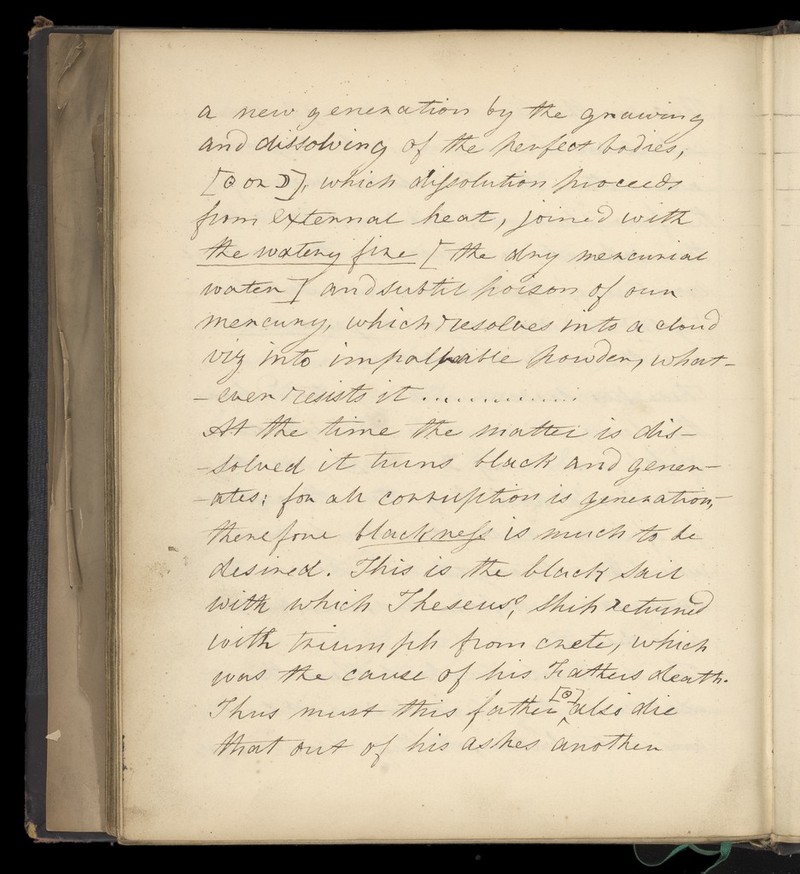 a new generation by the gnawing
and dissolving of the perfect bodies,
[☉ or ☽], which dissolution proceeds
from external heat, joined with
the watery fire [the dry mercurial
water] and subtil poison of our
mercury, which resolves into a cloud
viz into impalpable powder, what-
-ever resists it ..............
At the time the matter is dis-
-solved it turns black and gener-
-ates; for all corruption is generation,
therefore blackness is much to be
desired. This is the black sail
with which Theseus', ship returned
with triumph from crete, which
was the cause of his Fathers death.
Thus must this father [☉] also die
that out of his ashes another